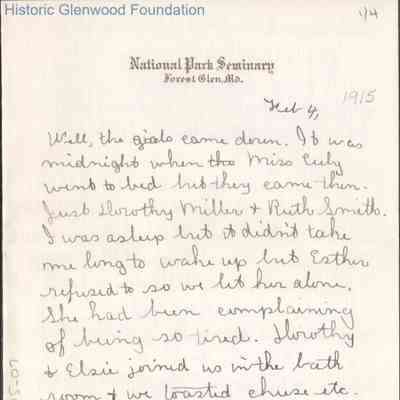 Historic Glenwood Foundation
1/4
National Park Seminary
Forest Glen, Md.
Feb 4,
1915
Well, the girls came down. It was
midnight when the Miss
went to bed but they came then.
Just Dorothy Miller & Ruth Smith.
I was asleep but it didn't take
me long to wake up but Esther
refused to so we let her alone.
She had been complaining
of being so tired. Dorothy
& Elsie joined us in the bath
room & we toasted cheese etc.